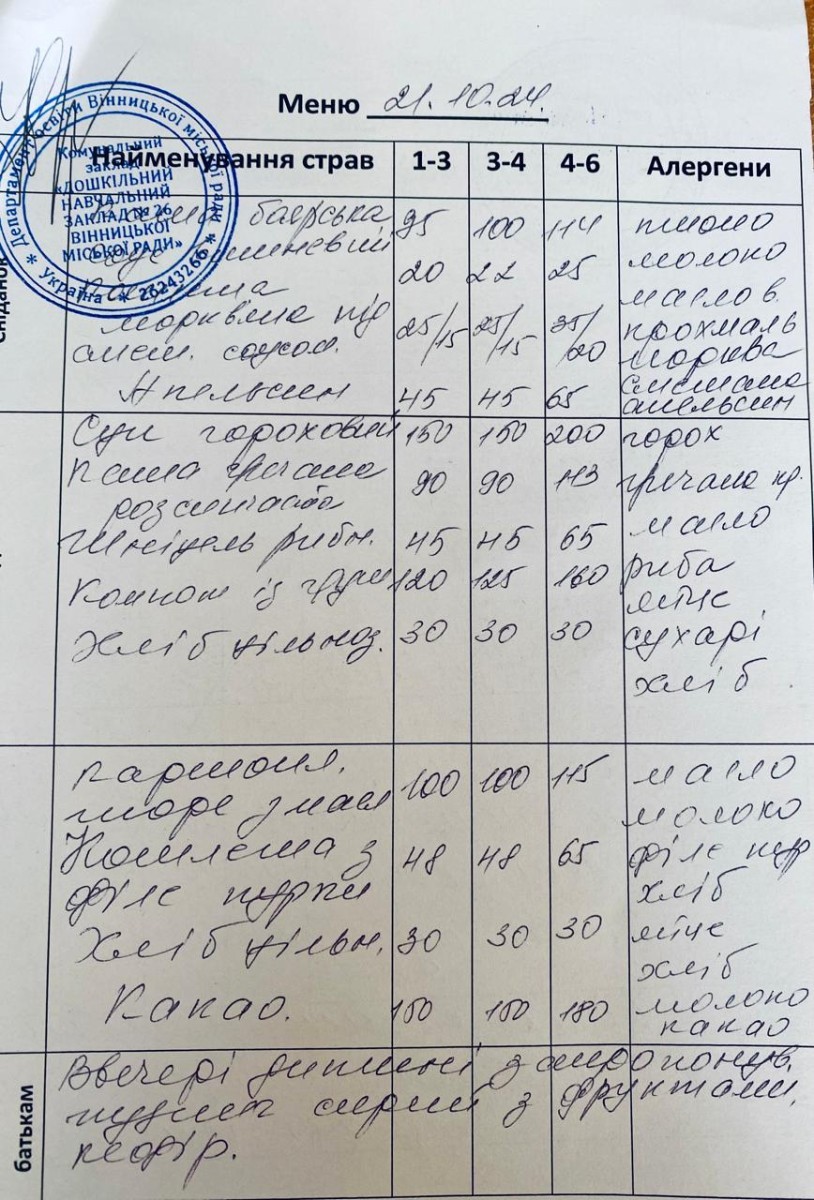 Меню 21.10.24.
Департамент освіти Вінницької міської ради
Комунальний
заклад
«ДОШКІЛЬНИЙ
НАВЧАЛЬНИЙ
ЗАКЛАД № 26
ВІННИЦЬКОЇ
МІСЬКОЇ РАДИ»
* Україна * 26243266 *
Найменування страв 1-3 3-4 4-6 Алергени
сніданок
боярська 95 100 114 пшоно
вишневий 20 22 25 молоко
масло в.
морквяна під 25/15 25/15 35/20 крохмаль
смет. соусом. морква
сметана
Апельсин 45 45 65 апельсин
Суп гороховий 150 150 200 горох
Каша гречана 90 90 113 гречана кр.
розсипчаста масло
Шніцель рибн. 45 45 65 риба
Компот із груш 120 125 160 яйце
Хліб цільноз. 30 30 30 сухарі
хліб
Картопл. 100 100 115 масло
пюре з масл молоко
Котлета з 48 48 65 філе кур
філе курки хліб
Хліб цільн. 30 30 30 яйце
хліб
Какао. 150 150 180 молоко
какао
батькам
Ввечері дитині запропонув.
пудинг сирний з фруктами,
кефір.